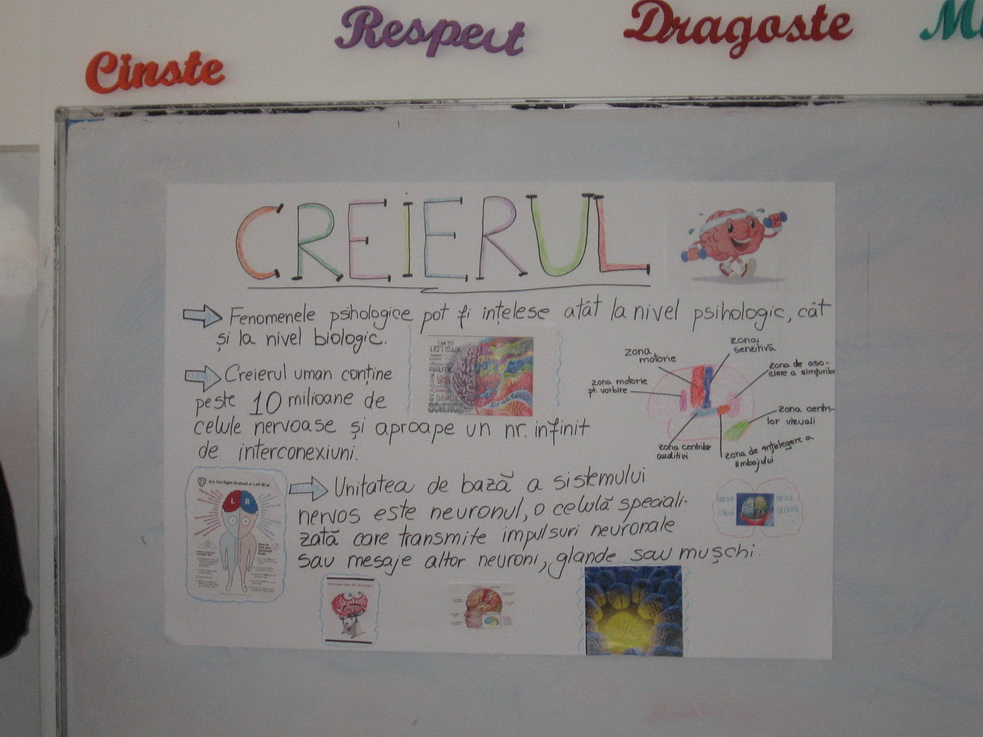 Cinste
Respect
Dragoste
CREIERUL
Fenomenele psihologice pot fi înțelese atât la nivel psihologic, cât
și la nivel biologic.
Creierul uman conține
peste 10 milioane de
celule nervoase și aproape un nr. infinit
de interconexiuni.
zona motorie
zona senzitivă
zona motorie
pt. vorbire
zona de aso-
ciere a simțurilor
zona centri-
lor vizuali
zona centrilor
auditivi
zona de înțelegere a
limbajului
Unitatea de bază a sistemului
nervos este neuronul, o celulă speciali-
zată care transmite impulsuri neuronale
sau mesaje altor neuroni, glande sau mușchi.
Are You Right-Brained or Left-Brained
L R